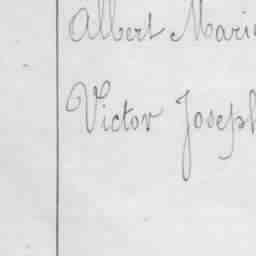 Albert Mari
Victor Joseph